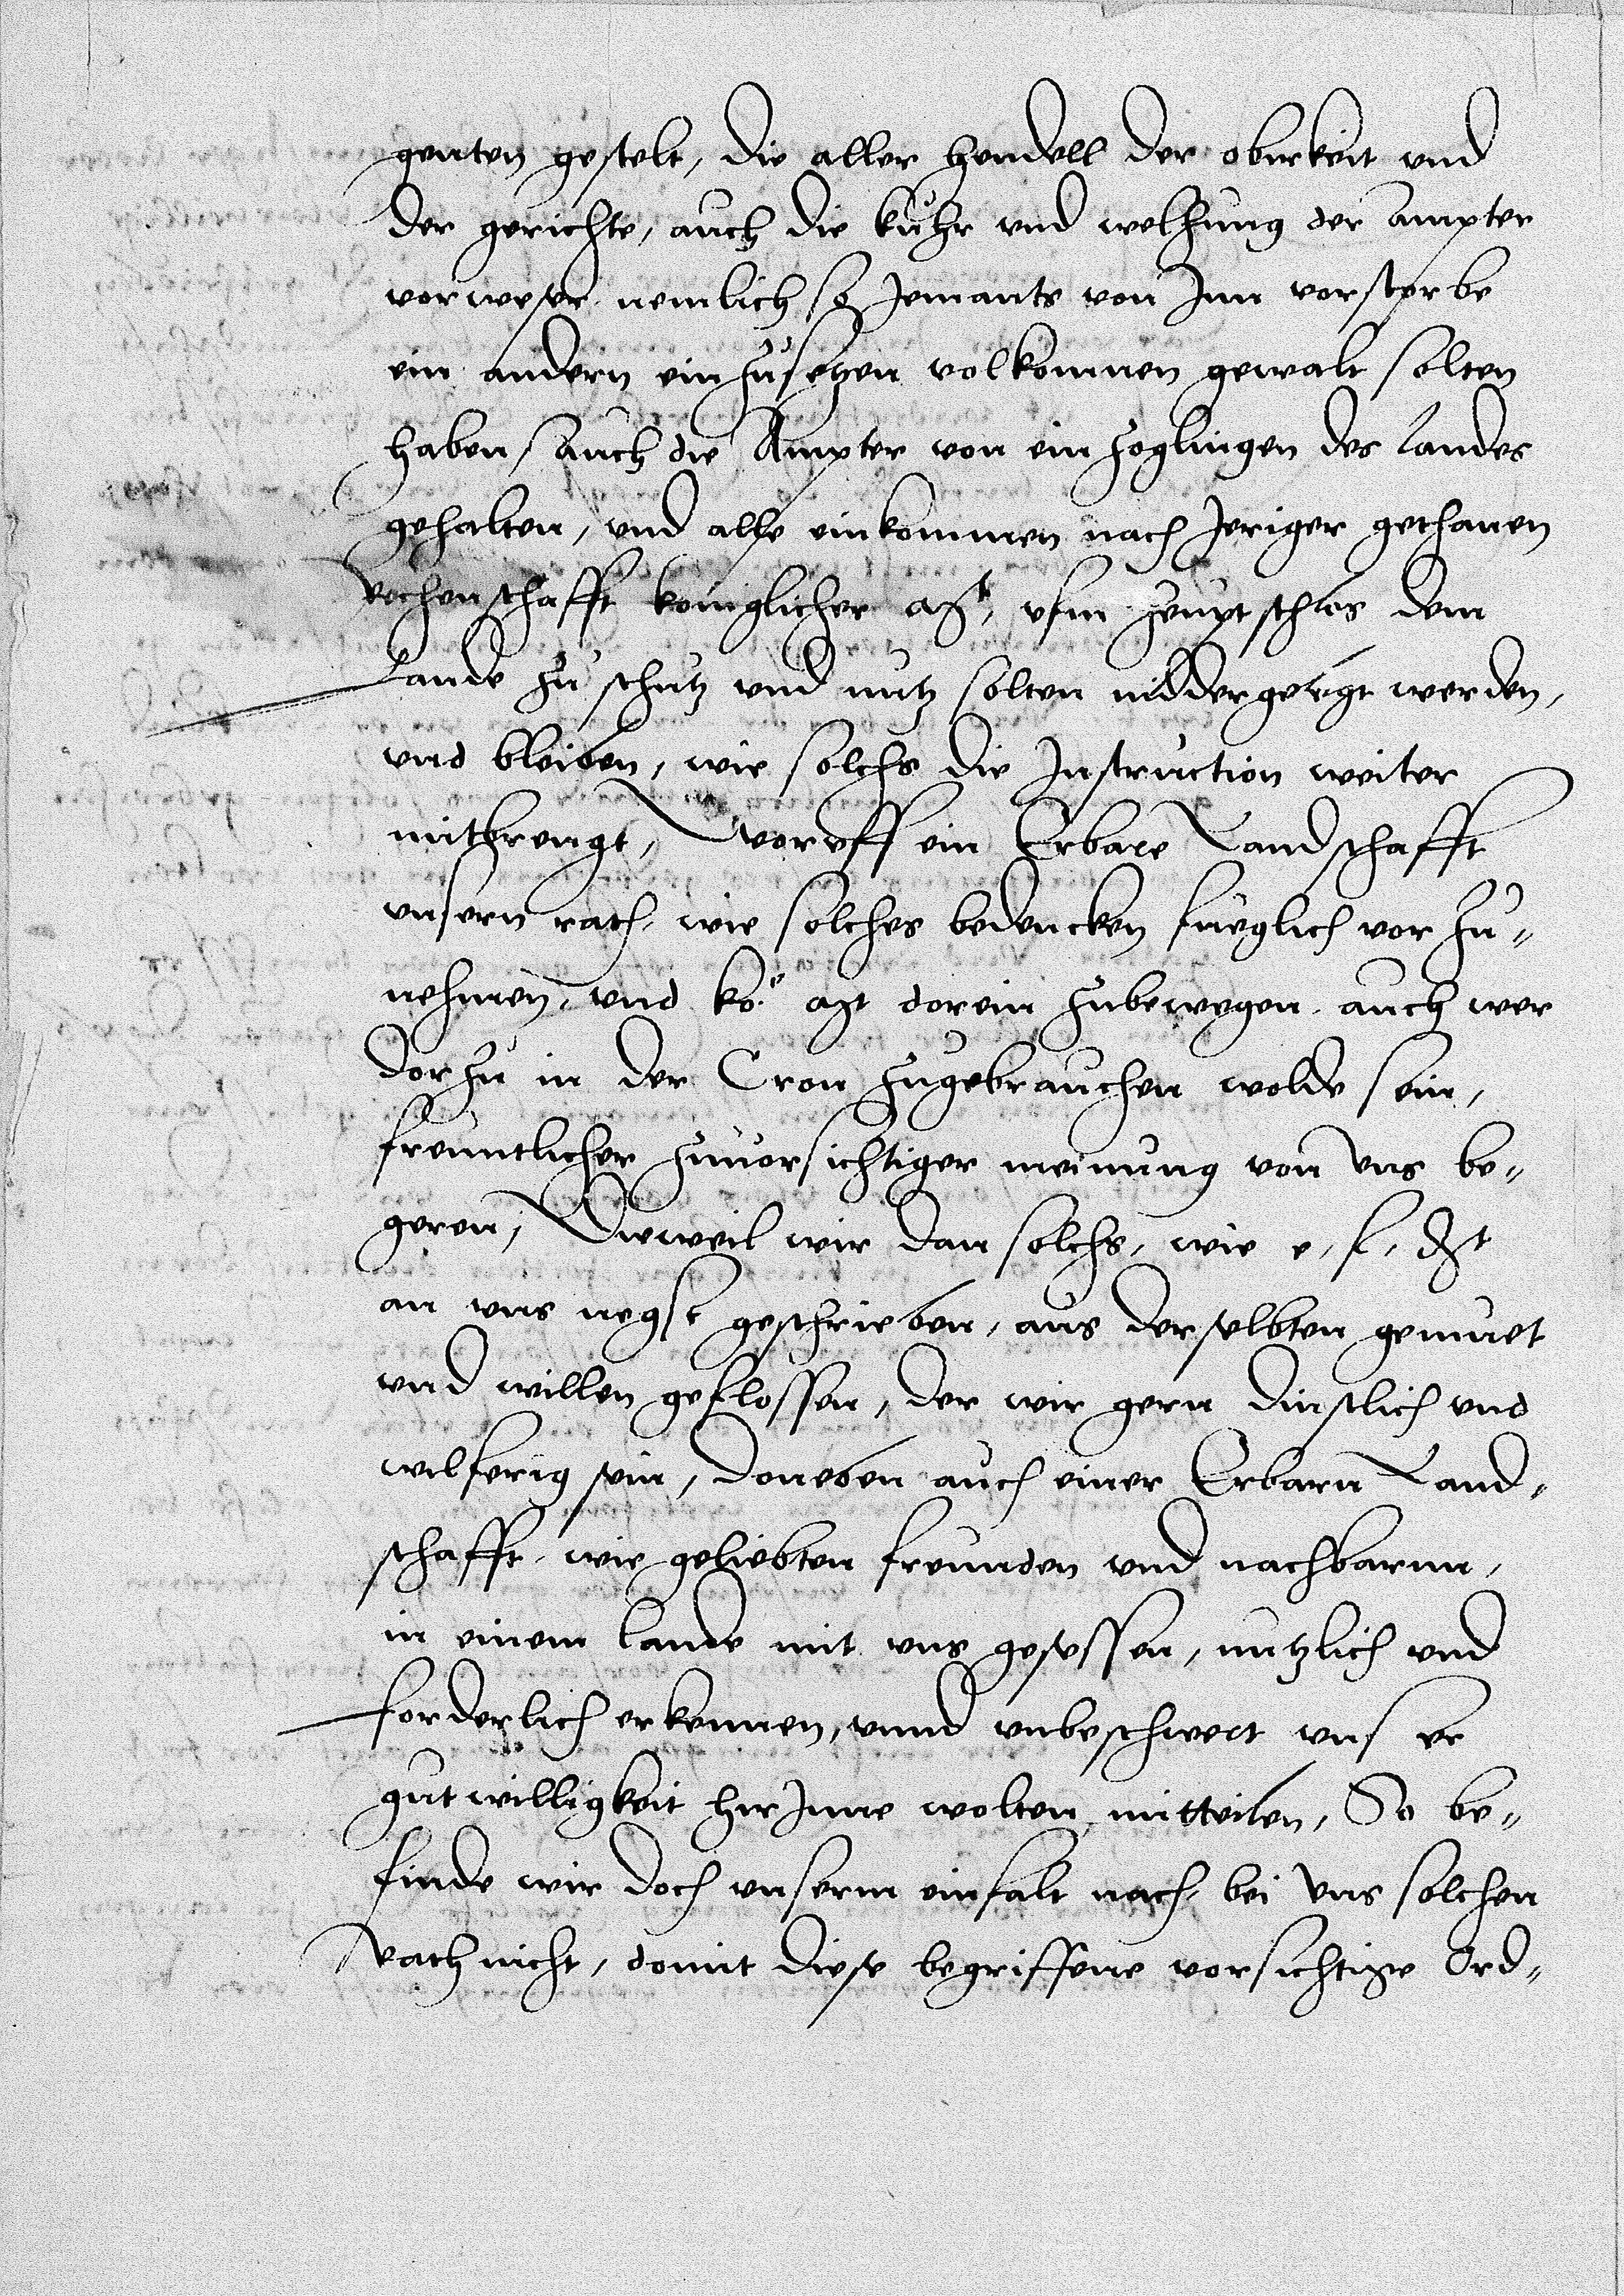 genten gestelt, die aller hendell der obirkeit und
der gerichte, auch die kuhr vnd welhung der Ampter
vorweser, nemlich so Jemants von Inn vorstorbe
ein andern ein zusetzen volkomnen gewalt solten
haben, Auch die Ampter von ein zoglingen des Landes
gehalten, vnd alle einkommen nach Jeriger gethanen
Rechenschafft koniglicher Mt, vfm heuptschlos dem
Lande zu schutz vnd nutz solten niddergelegt werden,
vnd bleiben, wie solchs die Instruction weiter
mitbrengt, Woruff ein Erbare Landschafft
vnsern rath, wie solches bedencken fueglich vor zu„
nehmen, vnd ko.e Mt dorein zubewegen, auch wer
dorzu in der Cron zugebrauchen wolde sein,
freuntlicher zuuorsichtiger meinung von vns be„
geren, Dieweil wir dan solchs, wie e, f, Dt
an vns negst geschrieben, aus derselbten gemuet
vnd willen geflossen, der wir gern dinstlich vnd
wilferig sein, doneben auch einer Erbarn Land„
schafft, wie geliebten freunden vnd nachbarnn,
in einem lande mit vns gesessen, nutzlich vnd
forderlich erkennen, vnnd vnbeschwert vnser
gutwilligkeit hir Inne wolten mitteilen, So be„
finde wir doch vnserm einfalt nach, bei vns solchen
Rath nicht, domit diese begriffene vorsichtige Ord„